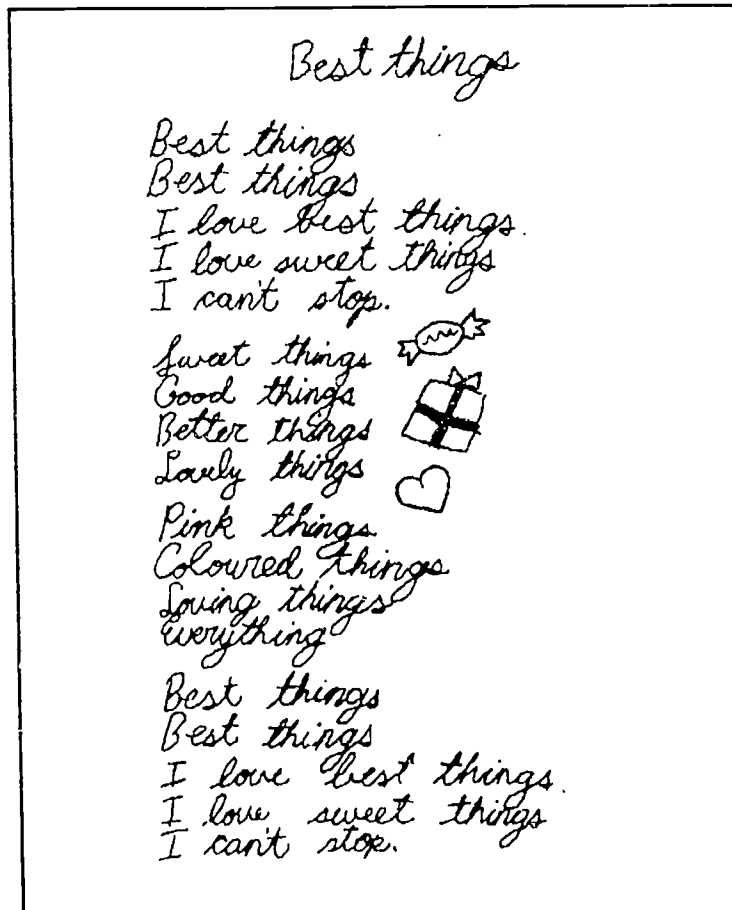 Best things
Best things
Best things
I love best things.
I love sweet things
I can't stop.
Sweet things
Good things
Better things
Lovely things
Pink things
Coloured things
Loving things
Everything
Best things
Best things
I love best things.
I love sweet things
I can't stop.